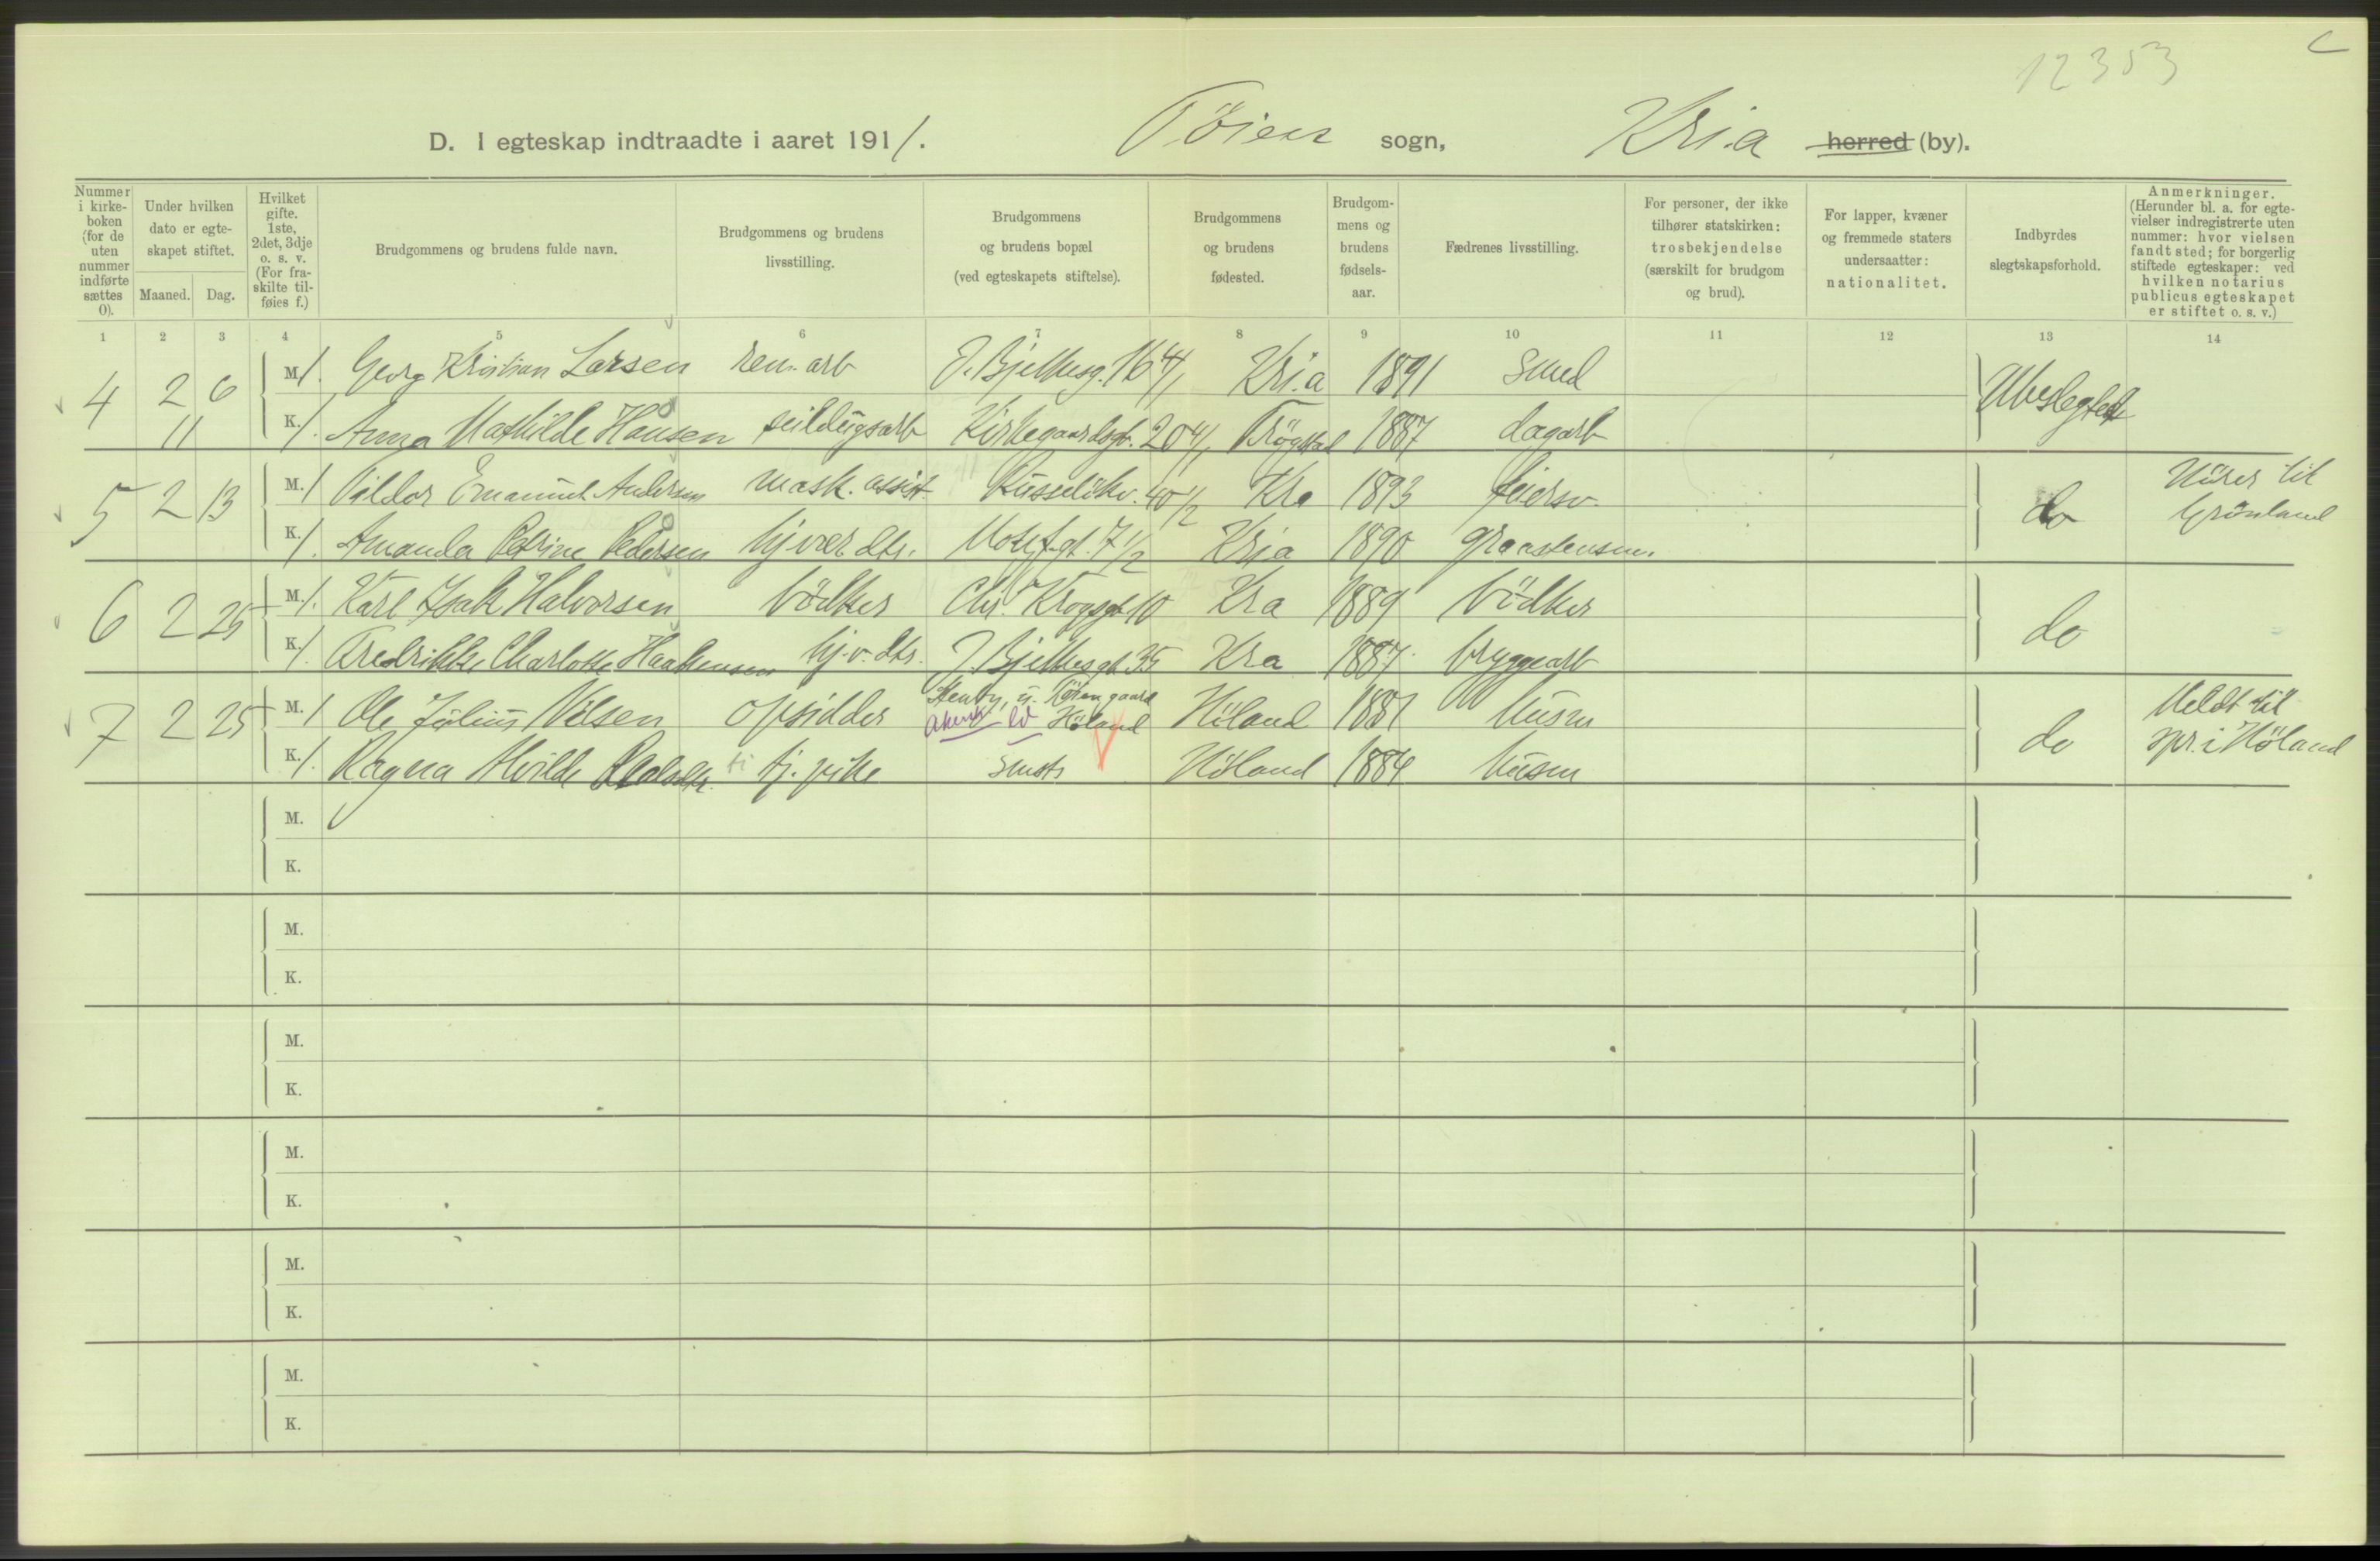 12353
D. I egteskap indtraadte i aaret 1911. Töien sogn, Kria herred (by).
Nummer i kirkeboken (for de uten nummer indførte sættes 0).
Under hvilken dato er egteskapet stiftet.
Maaned. Dag.
Hvilket gifte. 1ste, 2det, 3dje o. s. v. (For fraskilte tilføies f.)
Brudgommens og brudens fulde navn.
Brudgommens og brudens livsstilling.
Brudgommens og brudens bopæl (ved egteskapets stiftelse).
Brudgommens og brudens fødested.
Brudgommens og brudens fødselsaar.
Fædrenes livsstilling.
For personer, der ikke tilhører statskirken: trosbekjendelse (særskilt for brudgom og brud).
For lapper, kvæner og fremmede staters undersaatter: nationalitet.
Indbyrdes slegtskapsforhold.
Anmerkninger. (Herunder bl. a. for egtevielser indregistrerte uten nummer: hvor vielsen fandt sted; for borgerlig stiftede egteskaper: ved hvilken notarius publicus egteskapet er stiftet o. s. v.)
1 2 3 4 5 6 7 8 9 10 11 12 13 14
4 2 6 M. 1. Georg Kristian Larsen ren. arb J. Bjelkesg. 16 4/1 Kri.a 1891 Smed Ubeslegtet
11 K. 1. Anna Mathilde Hansen seildugsarb Kirkegaardsgt. 20 4/1 Trögstad 1887 dagarb
5 2 13 M. 1 Vildor Emanuel Andersen mask. assist. 40 1/2 Kra 1893 feiersv. do
K. 1. Amanda Petrine Pedersen hjvær. dtr. Motzf.gt. 7 1/2 Kria 1890 graastensm. Grönland
6 2 25 M. 1. Karl Isak Halvorsen bödker Chr. Kroggt 10 Kra 1889 bödker do
K. 1. Fredrikke Charlotte Haakensen hj.v. dtr. J. Bjelkesgt 35 Kra 1887 bryggearb
7 2 25 M. 1 Ole Julius Nilsen opsidder Höland Höland 1881 husm do Meldt til
K. 1. Ragna Alvilde tj. pike smsts Höland 1884 husm spr. i Höland
M.
K.
M.
K.
M.
K.
M.
K.
M.
K.
M.
K.